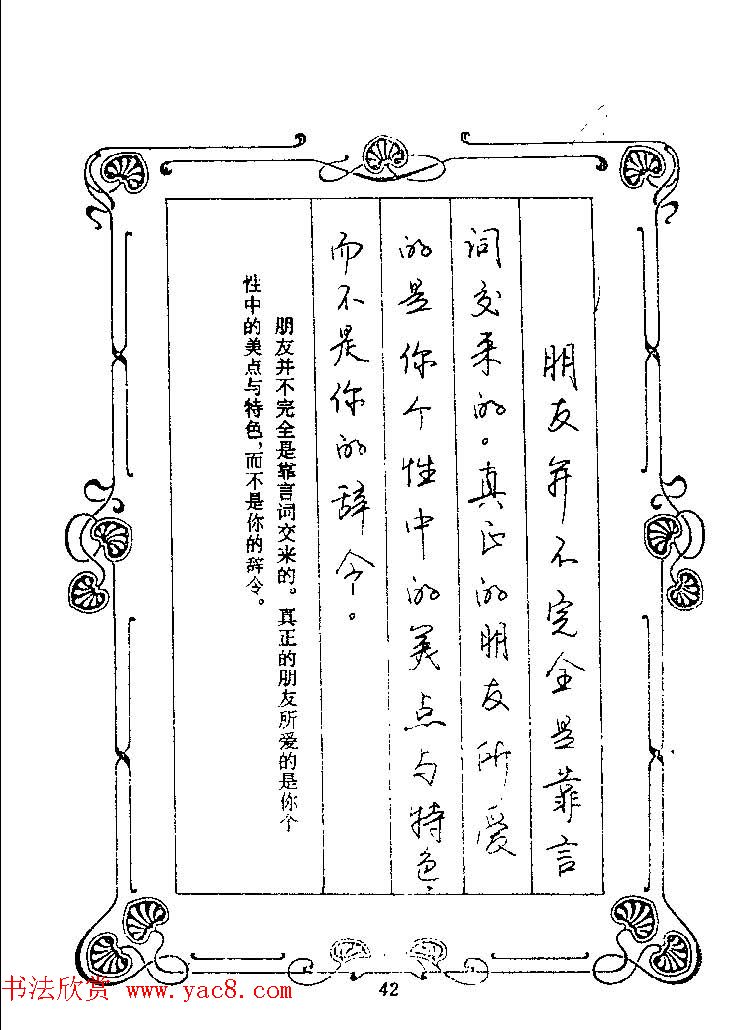 朋友并不完全是靠言
词交来的。真正的朋友所爱
的是你个性中的美点与特色，
而不是你的辞令。
朋友并不完全是靠言词交来的。真正的朋友所爱的是你个
性中的美点与特色，而不是你的辞令。
42
书法欣赏 www.yac8.com